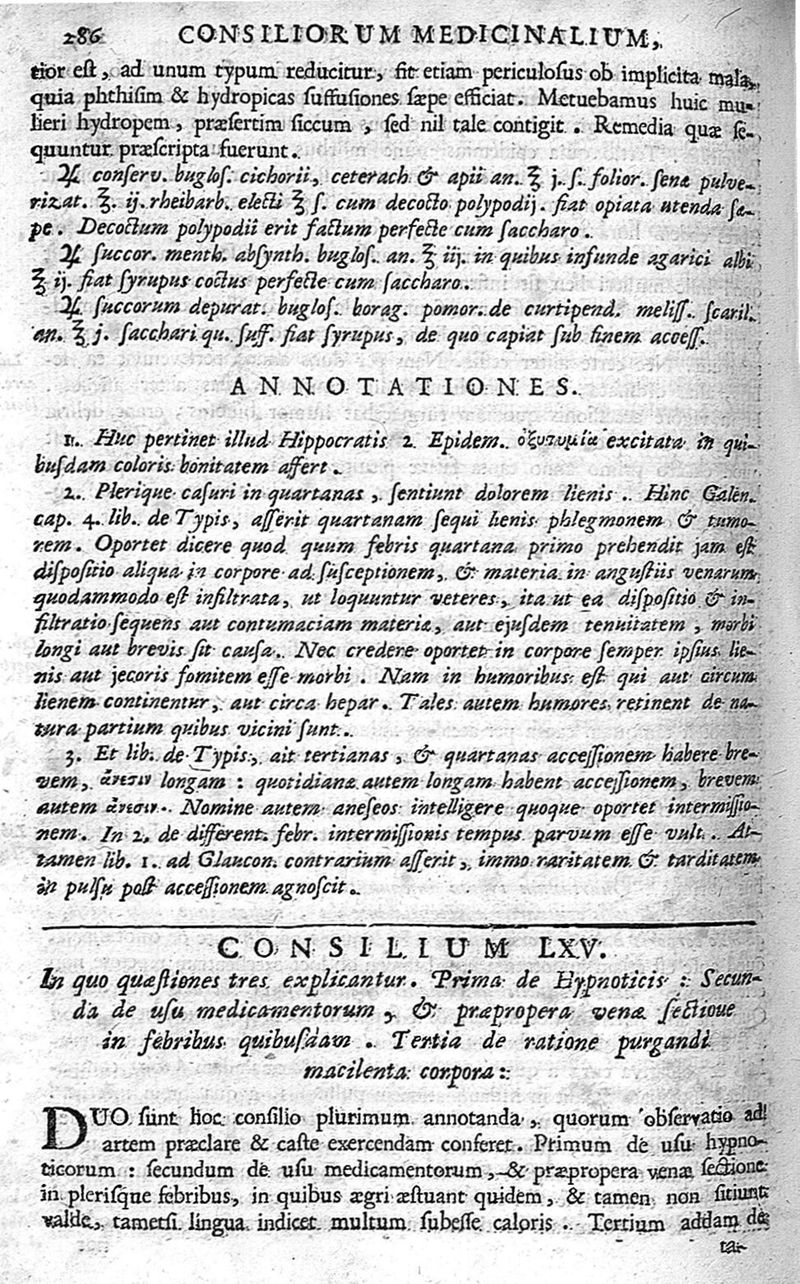 286 CONSILIORUM MEDICINALIUM,
tior est, ad unum typum reducitur, fit etiam periculosus ob implicita mala,
quia phthisim & hydropicas suffusiones sæpe efficiat. Metuebamus huic mu-
lieri hydropem, præsertim siccum, sed nil tale contigit. Remedia quæ se-
quuntur præscripta fuerunt.
♃ conserv. buglos. cichorii, ceterach & apii an. ℥ j. s. folior. senæ pulve-
rizat. ℥. ij. rheibarb. electi ℥ s. cum decocto polypodij. fiat opiata utenda sæ-
pe. Decoctum polypodii erit factum perfecte cum saccharo.
♃ succor. menth. absynth. buglos. an. ℥ iij. in quibus infunde agarici albi
℥ ij. fiat syrupus coctus perfecte cum saccharo.
♃ succorum depurat. buglos. borag. pomor. de curtipend. meliss. scaril.
an. ℥ j. sacchari qu. suff. fiat syrupus, de quo capiat sub finem access.
ANNOTATIONES.
1. Huc pertinet illud Hippocratis 2 Epidem. ὀξυτυμία excitata in qui-
busdam coloris bonitatem affert.
2. Plerique casuri in quartanas, sentiunt dolorem lienis. Hinc Galen.
cap. 4. lib. de Typis, asserit quartanam sequi lienis phlegmonem & tumo-
rem. Oportet dicere quod quum febris quartana primo prehendit jam est
dispositio aliqua in corpore ad susceptionem, & materia in angustiis venarum
quodammodo est infiltrata, ut loquuntur veteres, ita ut ea dispositio & in-
filtratio sequens aut contumaciam materiæ, aut ejusdem tenuitatem, morbi
longi aut brevis sit causa. Nec credere oportet in corpore semper ipsius lie-
nis aut jecoris fomitem esse morbi. Nam in humoribus est qui aut circum
lienem continentur, aut circa hepar. Tales autem humores retinent de na-
tura partium quibus vicini sunt.
3. Et lib. de Typis, ait tertianas, & quartanas accessionem habere bre-
vem, ἄνεσιν longam : quotidianæ autem longam habent accessionem, brevem
autem ἄνεσιν. Nomine autem aneseos intelligere quoque oportet intermissio-
nem. In 2. de different. febr. intermissionis tempus parvum esse vult. At-
tamen lib. 1. ad Glaucon. contrarium asserit, immo raritatem & tarditatem
in pulsu post accessionem agnoscit.
CONSILIUM LXV.
In quo quæstiones tres explicantur. Prima de Hypnoticis : Secun-
da de usu medicamentorum, & præpropera venæ sectione
in febribus quibusdam. Tertia de ratione purgandi
macilenta corpora :
DUO sunt hoc consilio plurimum annotanda, quorum observatio ad
artem præclare & caste exercendam conferet. Primum de usu hypno-
ticorum : secundum de usu medicamentorum, & præpropera venæ sectione
in plerisque febribus, in quibus ægri æstuant quidem, & tamen non sitiunt
valde, tametsi lingua indicet multum subesse caloris. Tertium addam de
ta-